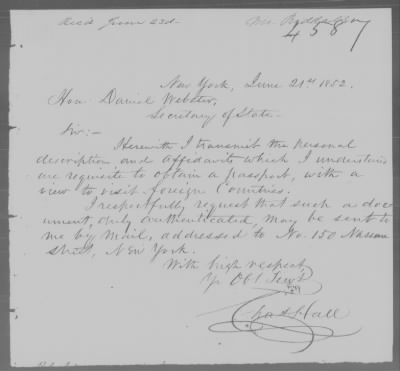 Rec'd June 23d
4587
New York, June 21st 1852.
Hon. Daniel Webster,
Secretary of State.
Sir:-
Herewith I transmit the personal
description and affidavits which I understand
are requisite to obtain a passport, with a
view to visit foreign Countries.
I respectfully request that such a doc-
ument, duly authenticated, may be sent to
me by mail, addressed to No. 150 Nassau
street, New York.
With high respect
Yr Obt Servt
Hall